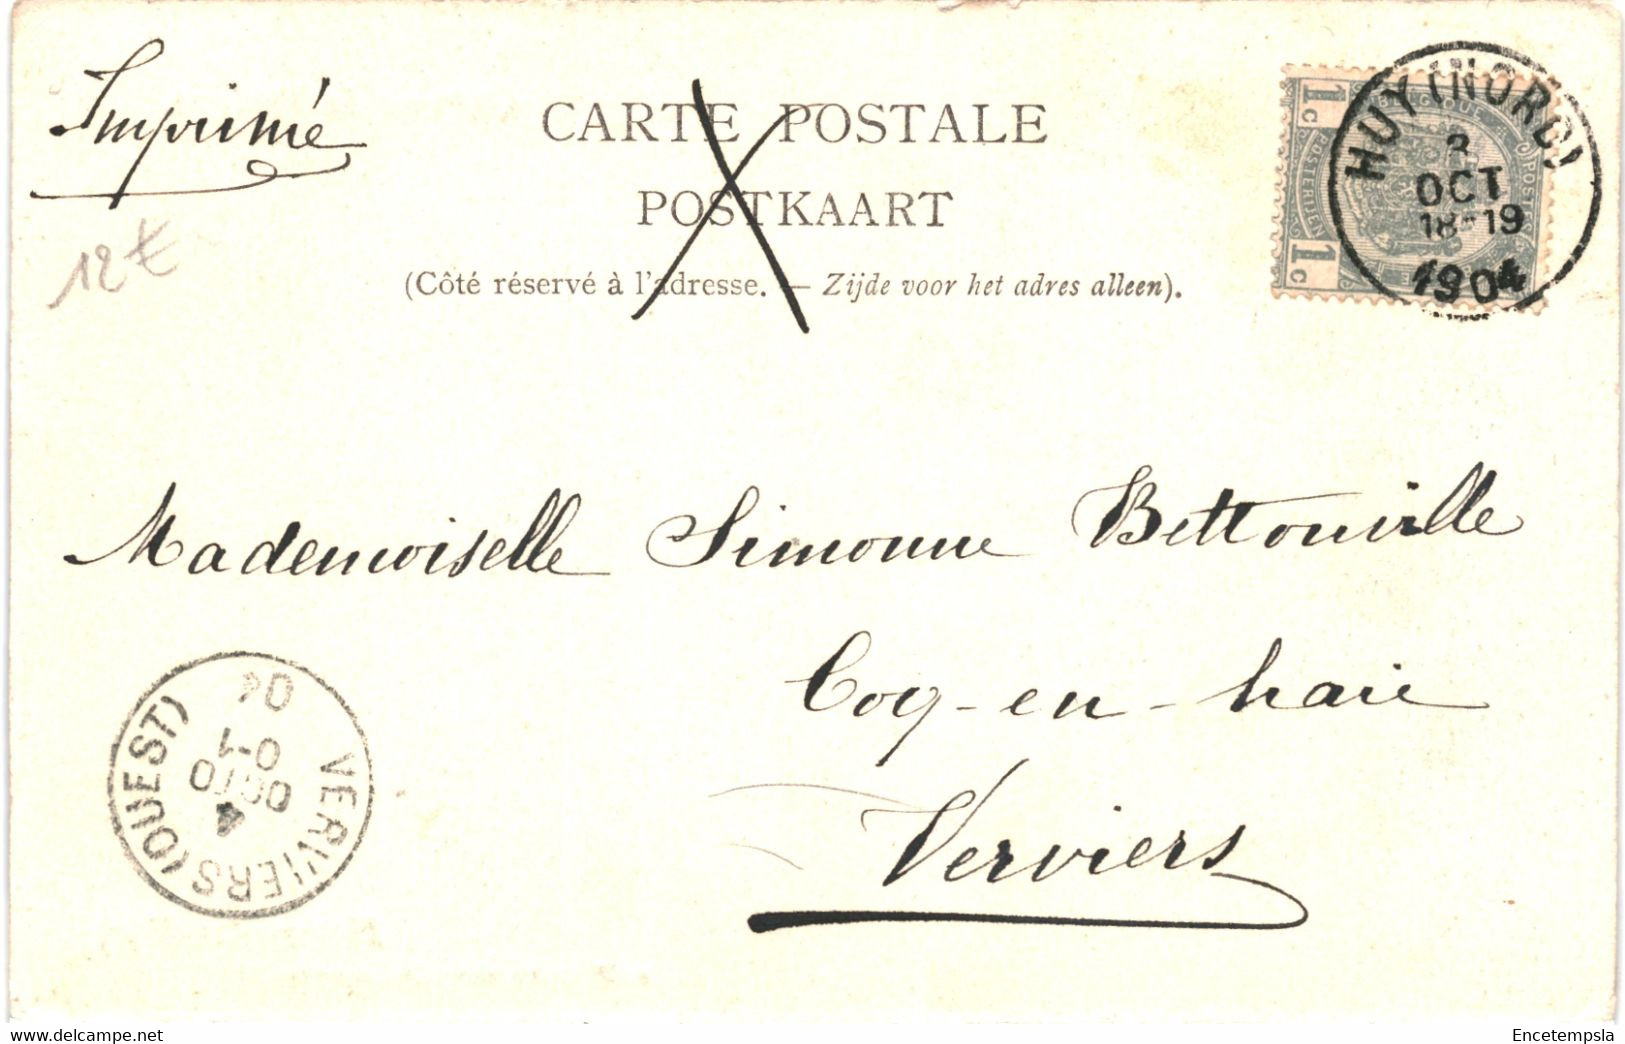 Imprimé
CARTE POSTALE
POSTKAART
(Côté réservé à l'adresse. — Zijde voor het adres alleen).
12 €
1c
BELGIQUE
POSTERIJEN
1c
HUY (NORD)
3
OCT
18-19
1904
Mademoiselle Simonne Bettonville
Coq-en-haie
Verviers
VERVIERS (OUEST)
4
OCTO
0-1
04
www.delcampe.net
Encetempsla